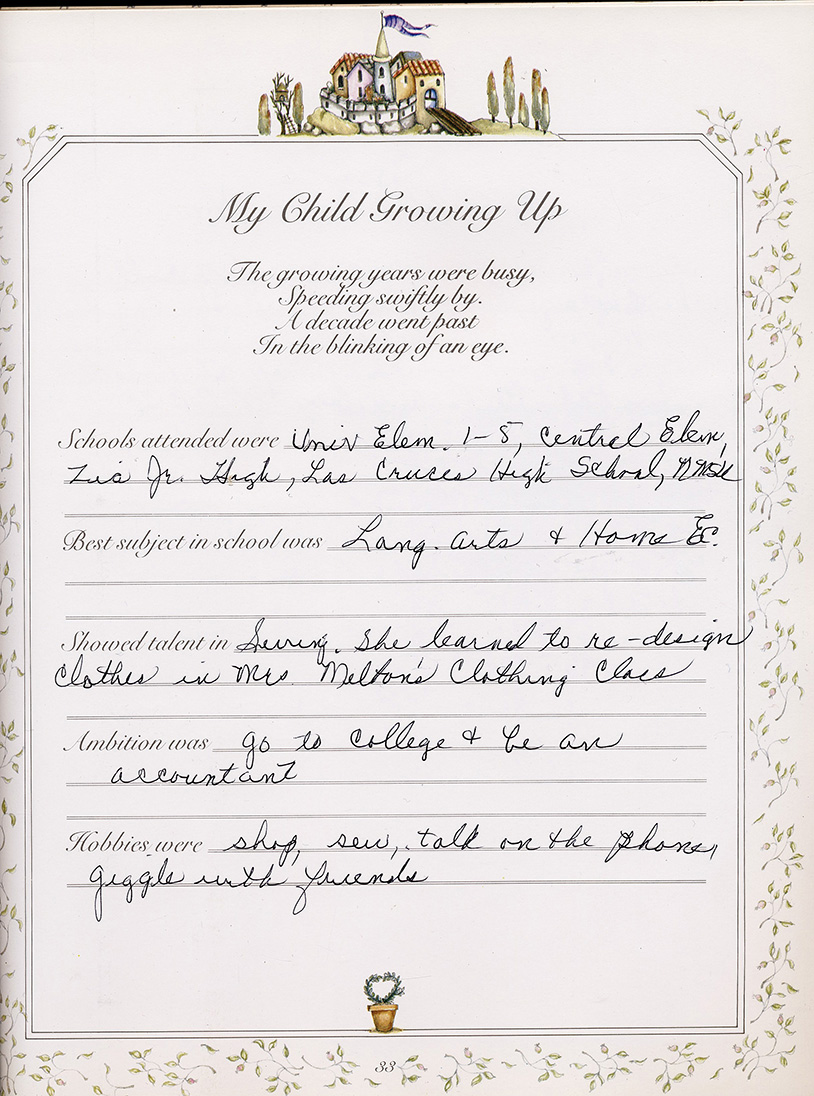 My Child Growing Up
The growing years were busy,
Speeding swiftly by.
A decade went past
In the blinking of an eye.
Schools attended were Univ Elem. 1-5, Central Elem,
Zia Jr. High, Las Cruces High School, NMSU
Best subject in school was Lang. Arts & Home Ec.
Showed talent in Sewing. She learned to re-design
clothes in Mrs. Melton's Clothing Class
Ambition was go to college & be an
accountant
Hobbies were shop, sew, talk on the phone,
giggle with friends
33